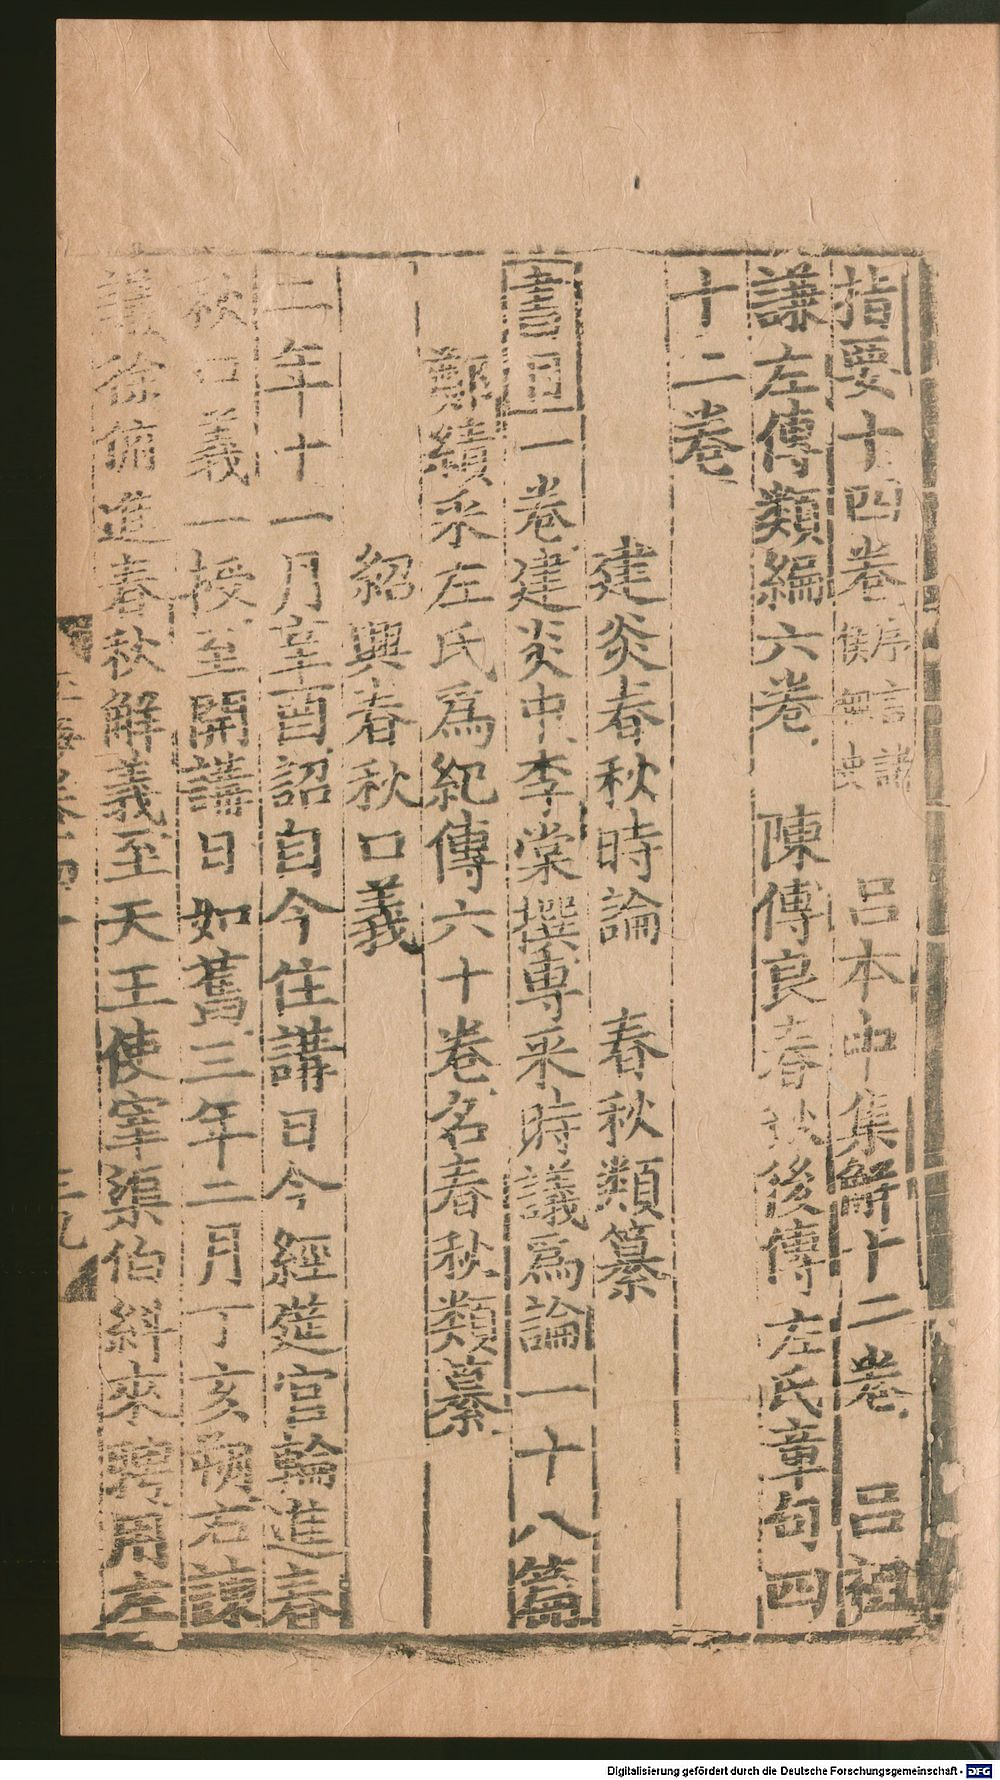 指要十四卷序言諸侯無史　吕本中集解十二卷　吕祖
謙左傳類編六卷　陳傳良春秋後傳左氏章句四
十二卷
建炎春秋時論　春秋類纂
書目一卷建炎中李棠撰專采時議爲論一十八篇
鄭績采左氏爲紀傳六十卷名春秋類纂
紹興春秋口義
二年十一月辛酉詔自今住講日令經筵官輪進春
秋口義一授至開講日如舊三年二月丁亥朔右諫
議徐俯進春秋解義至天王使宰渠伯糾來聘用左
Digitalisierung gefördert durch die Deutsche Forschungsgemeinschaft - DFG